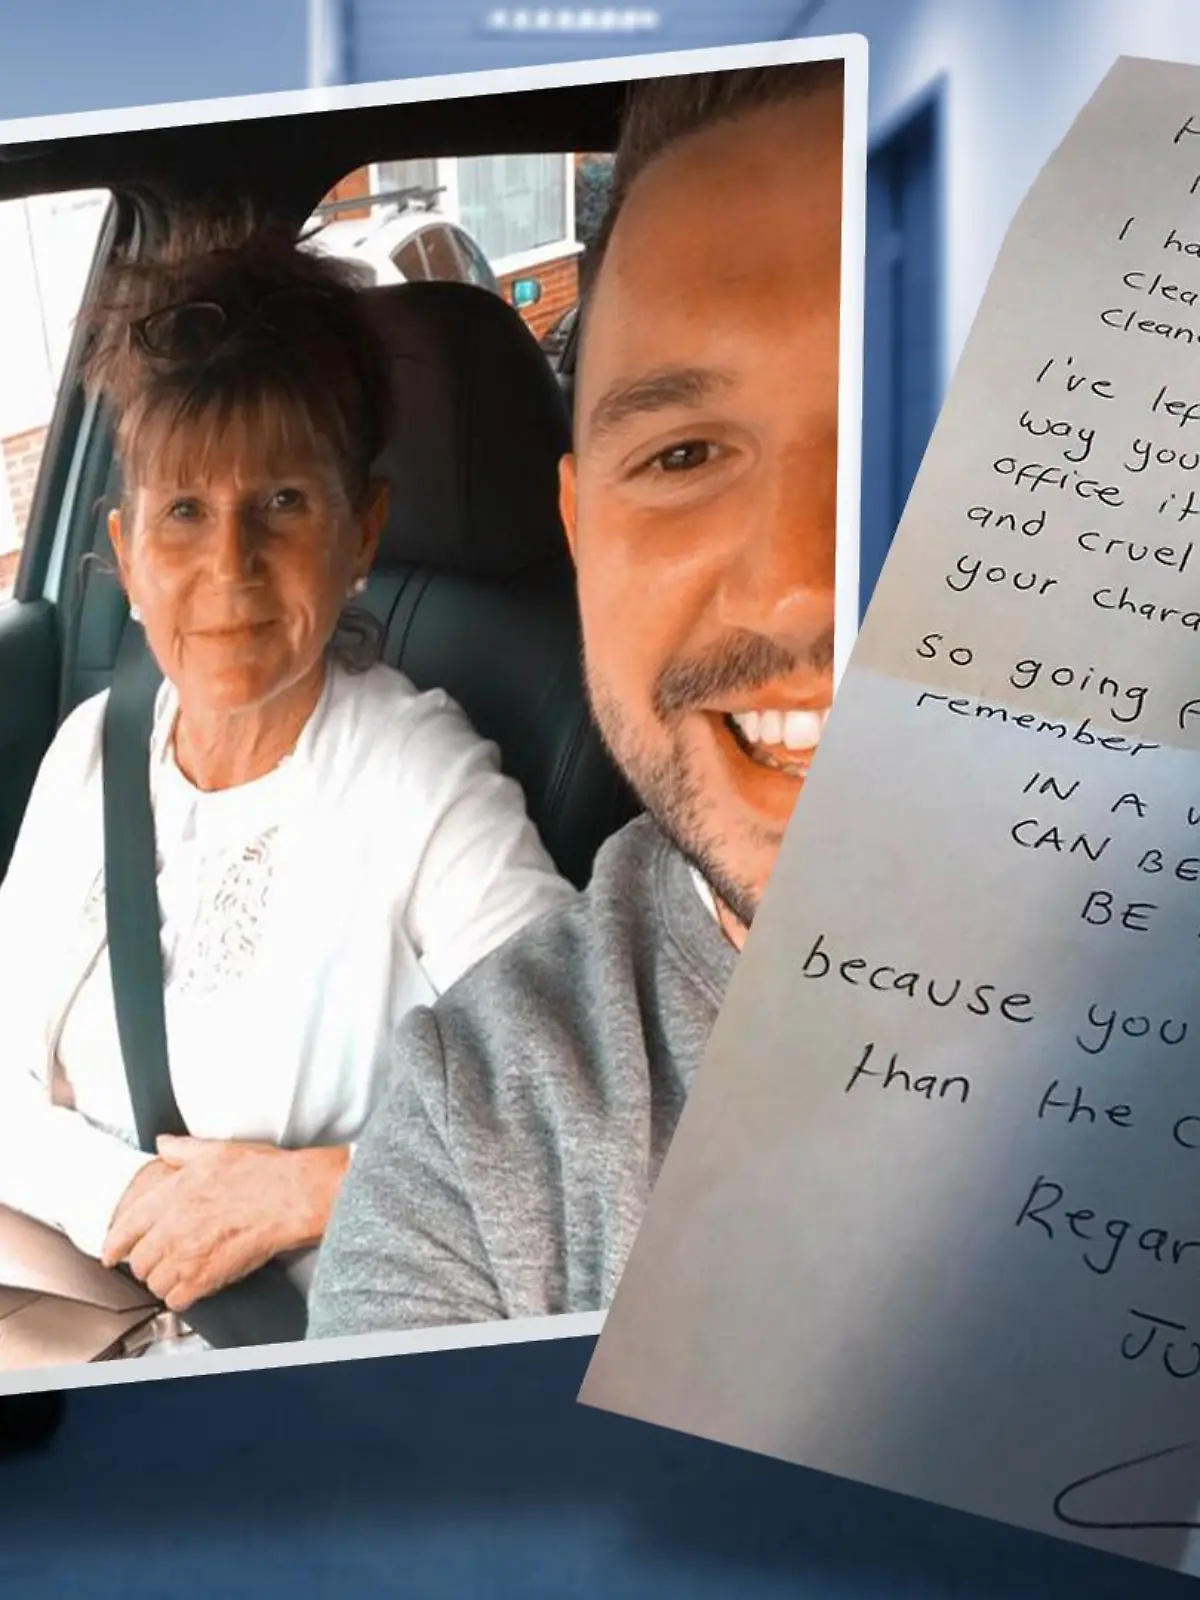 I ha
clea
clean
I've lef
way you
office it
and cruel
your chara
so going f
remember
IN A
CAN BE
BE
because you
than the c
Regar
JU